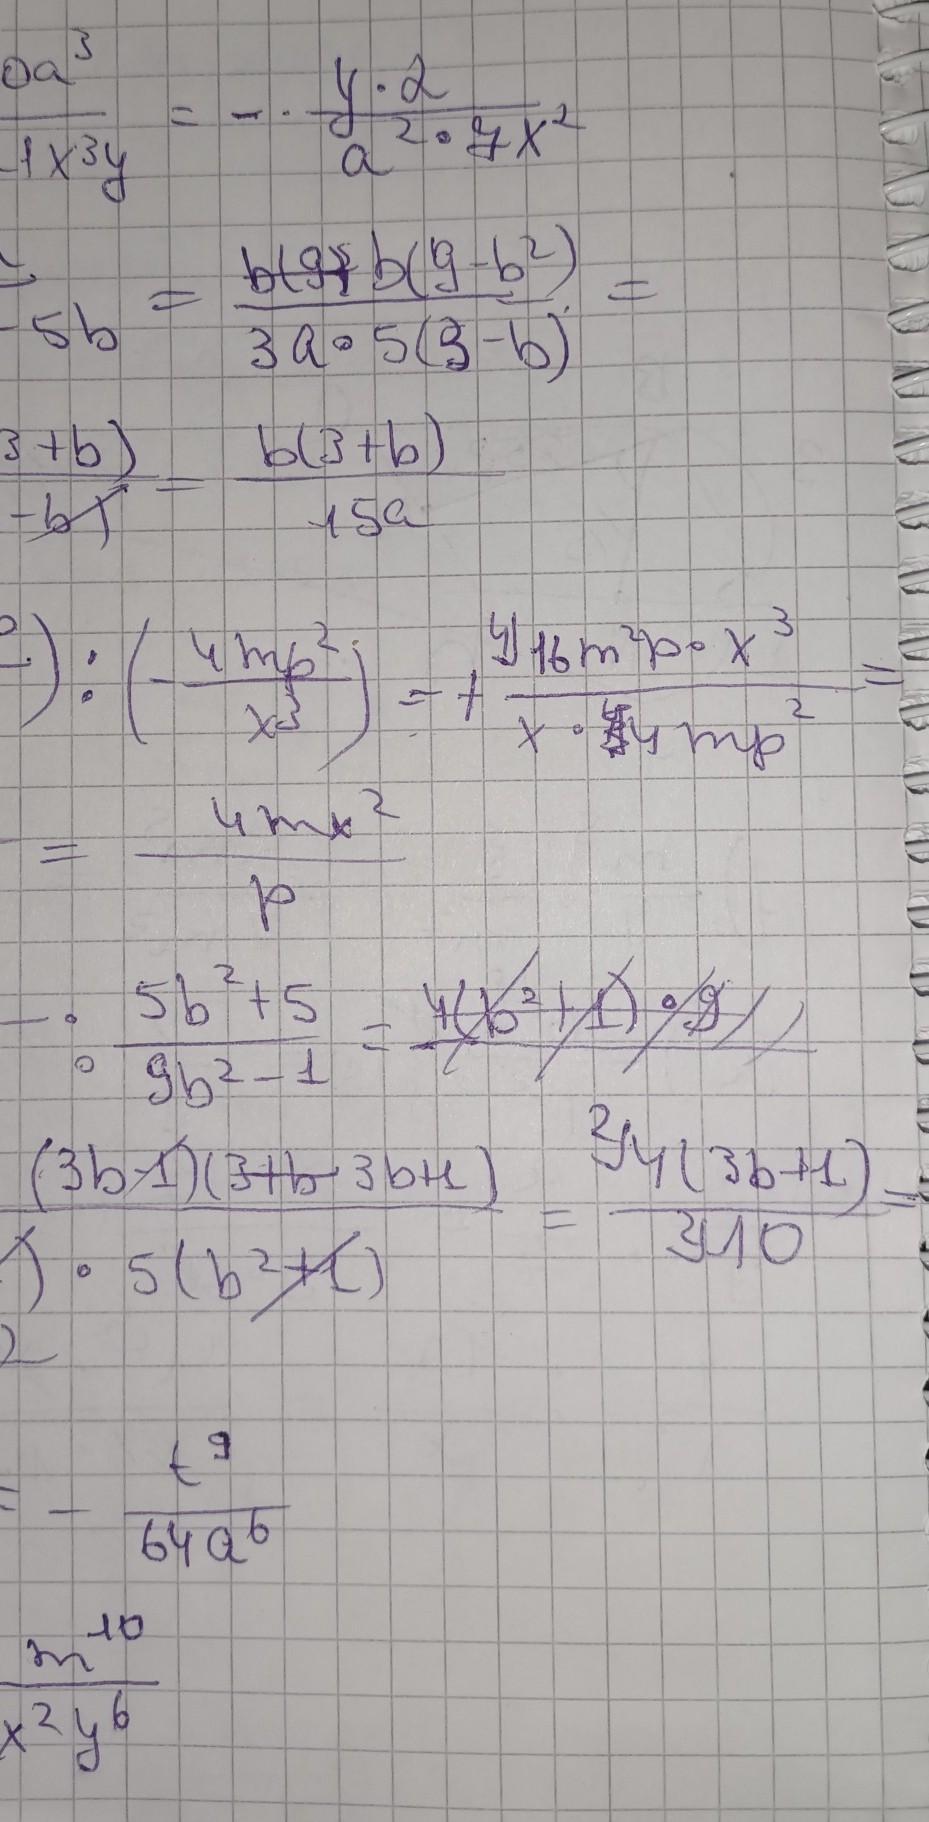 0a³/-1x³y = - · y · 2/a² · 7x²
-5b = b(9-b²)/3a · 5(3-b) =
3+b)/-b) = b(3+b)/15a
) : (-4mp²/x³) = + 16m²p · x³/x · 4mp² =
= 4mx²/p
: 5b²+5/9b²-1 = 4(b²+1) · 9
(3b-1)(3+b 3b+1)/) · 5(b²+1) = 2 4(3b+1)/10 =
2
= - t⁹/64a⁶
m¹⁰/x²y⁶